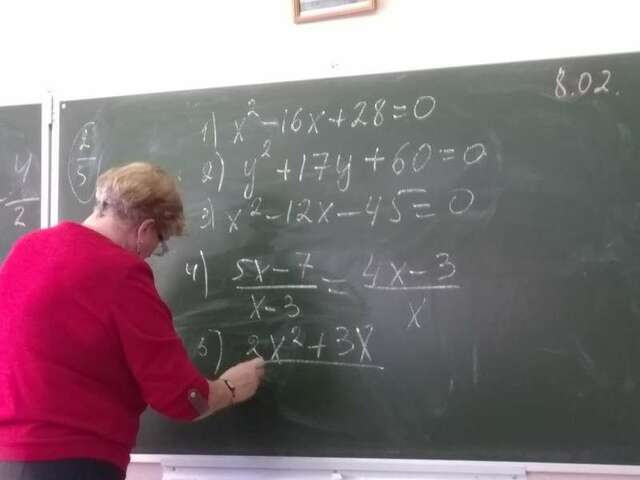 8.02.
2/5
1) x² - 16x + 28 = 0
2) y² + 17y + 60 = 0
3) x² - 12x - 45 = 0
4) (5x - 7)/(x - 3) = (4x - 3)/x
5) 2x² + 3x